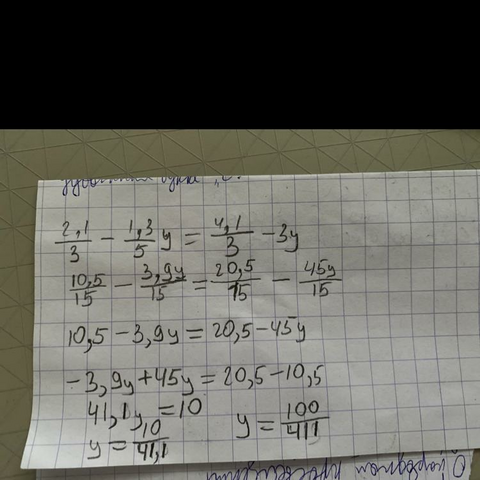 2,1/3 - 1,3/5 y = 4,1/3 - 3y
10,5/15 - 3,9y/15 = 20,5/15 - 45y/15
10,5 - 3,9y = 20,5 - 45y
-3,9y + 45y = 20,5 - 10,5
41,1y = 10
y = 10/41,1
y = 100/411